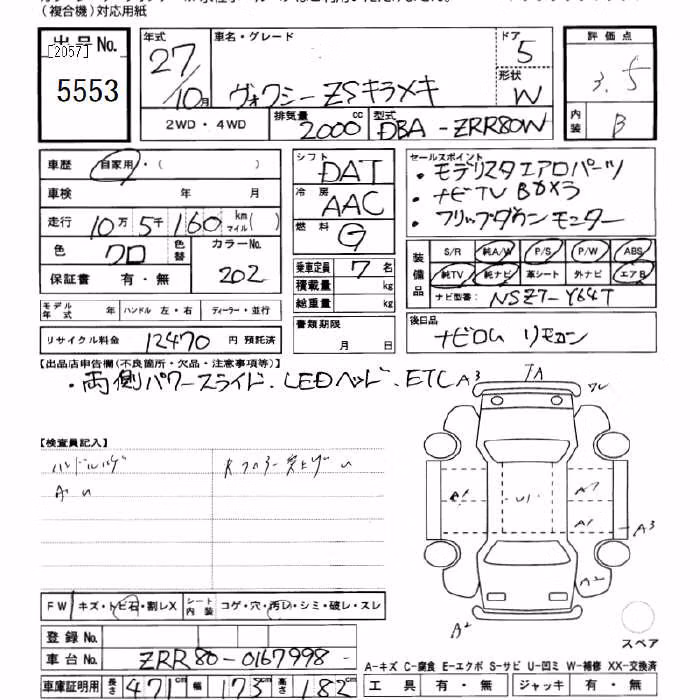 (複合機)対応用紙
出品No.
[2057]
5553
年式
27/10月
車名・グレード
ヴォクシー ZSキラメキ
ドア
5
形状
W
評価点
3.5
内装
B
2WD・4WD
排気量
2000cc
型式
DBA-ZRR80W
車歴 自家用・( )
車検 年 月
走行 10万5千160 km マイル( )
色 クロ 色替 カラーNo. 202
保証書 有・無
シフト DAT
冷房 AAC
燃料 G
乗車定員 7名
積載量 kg
総重量 kg
セールスポイント
・モデリスタエアロパーツ
・ナビTV Bカメラ
・フリップダウンモニター
装備品
S/R 純A/W P/S P/W ABS
純TV 純ナビ 革シート 外ナビ エアB
ナビ型番: NSZT-Y64T
モデル年式 年 ハンドル 左・右 ディーラー・並行
書類期限
月 日
後日品
ナビロム リモコン
リサイクル料金 12470 円 預託済
【出品店申告欄(不良箇所・欠品・注意事項等)】
・両側パワースライド.LEDヘッド.ETC
A3
1A
【検査員記入】
ハンドルハゲ
A1
U1
A1
A3
A2
A2
スペア
FW キズ・トビ石・割レX シート内装 コゲ・穴・汚レ・シミ・破レ・スレ
登録No.
車台No. ZRR80-0167998
車庫証明用 長さ 471cm 幅 173cm 高さ 182cm
A-キズ C-腐食 E-エクボ S-サビ U-凹ミ W-補修 XX-交換済
工具 有・無 ジャッキ 有・無